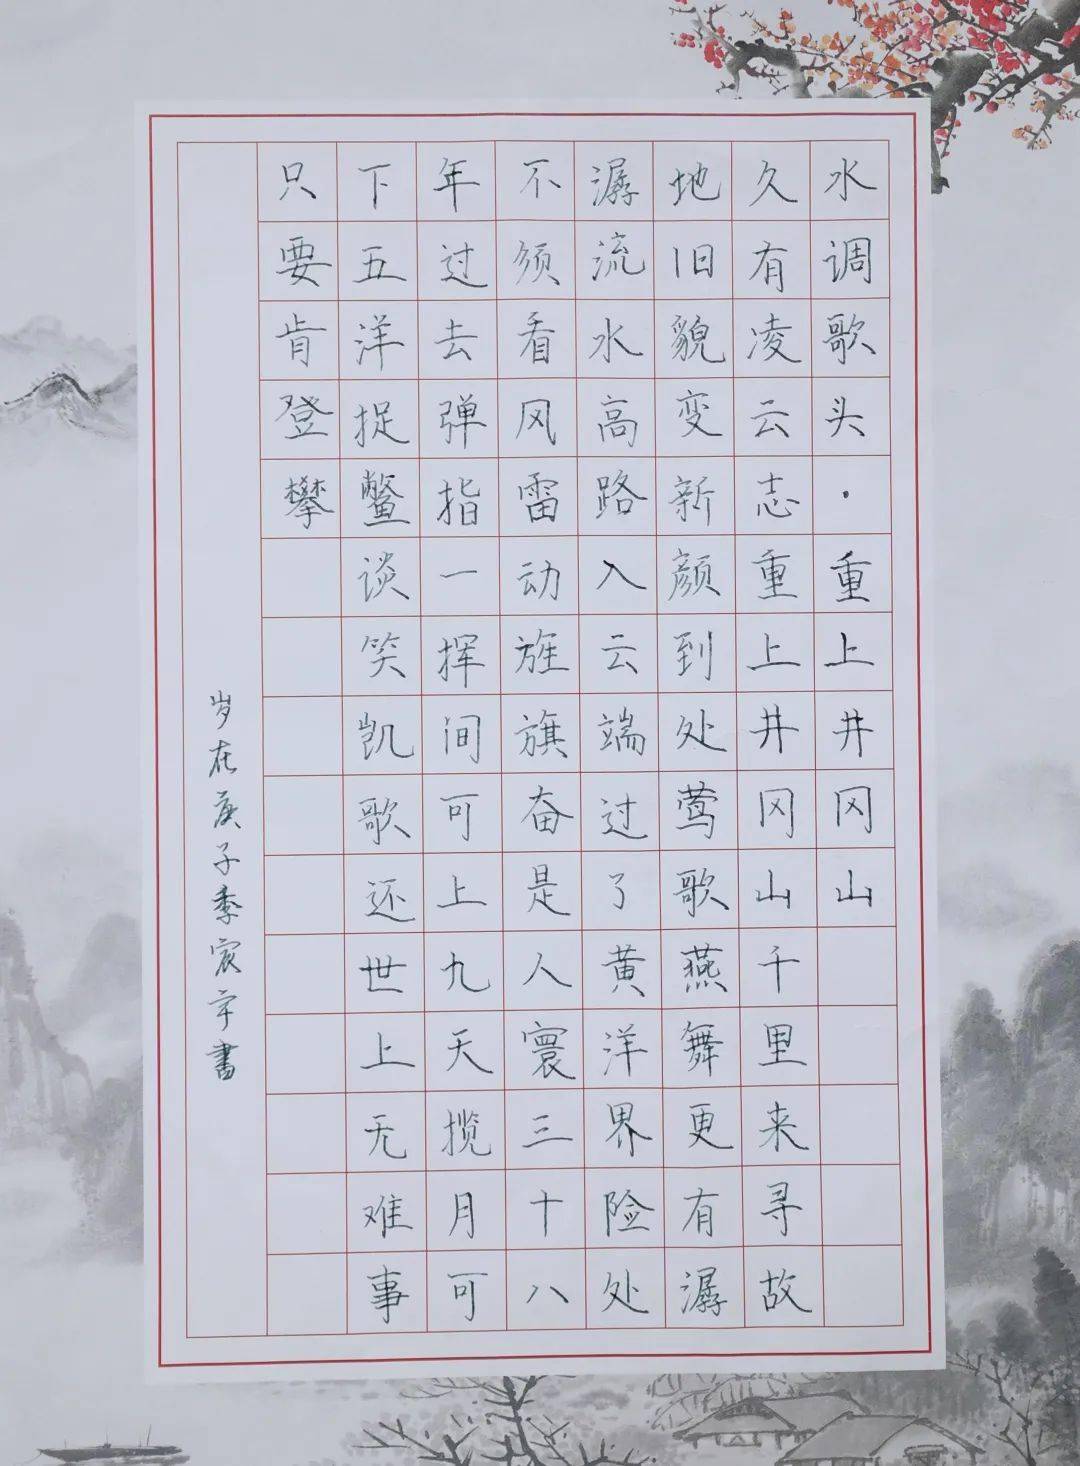 水调歌头·重上井冈山
久有凌云志重上井冈山千里来寻故
地旧貌变新颜到处莺歌燕舞更有潺
潺流水高路入云端过了黄洋界险处
不须看风雷动旌旗奋是人寰三十八
年过去弹指一挥间可上九天揽月可
下五洋捉鳖谈笑凯歌还世上无难事
只要肯登攀
岁在庚子季宸宇書